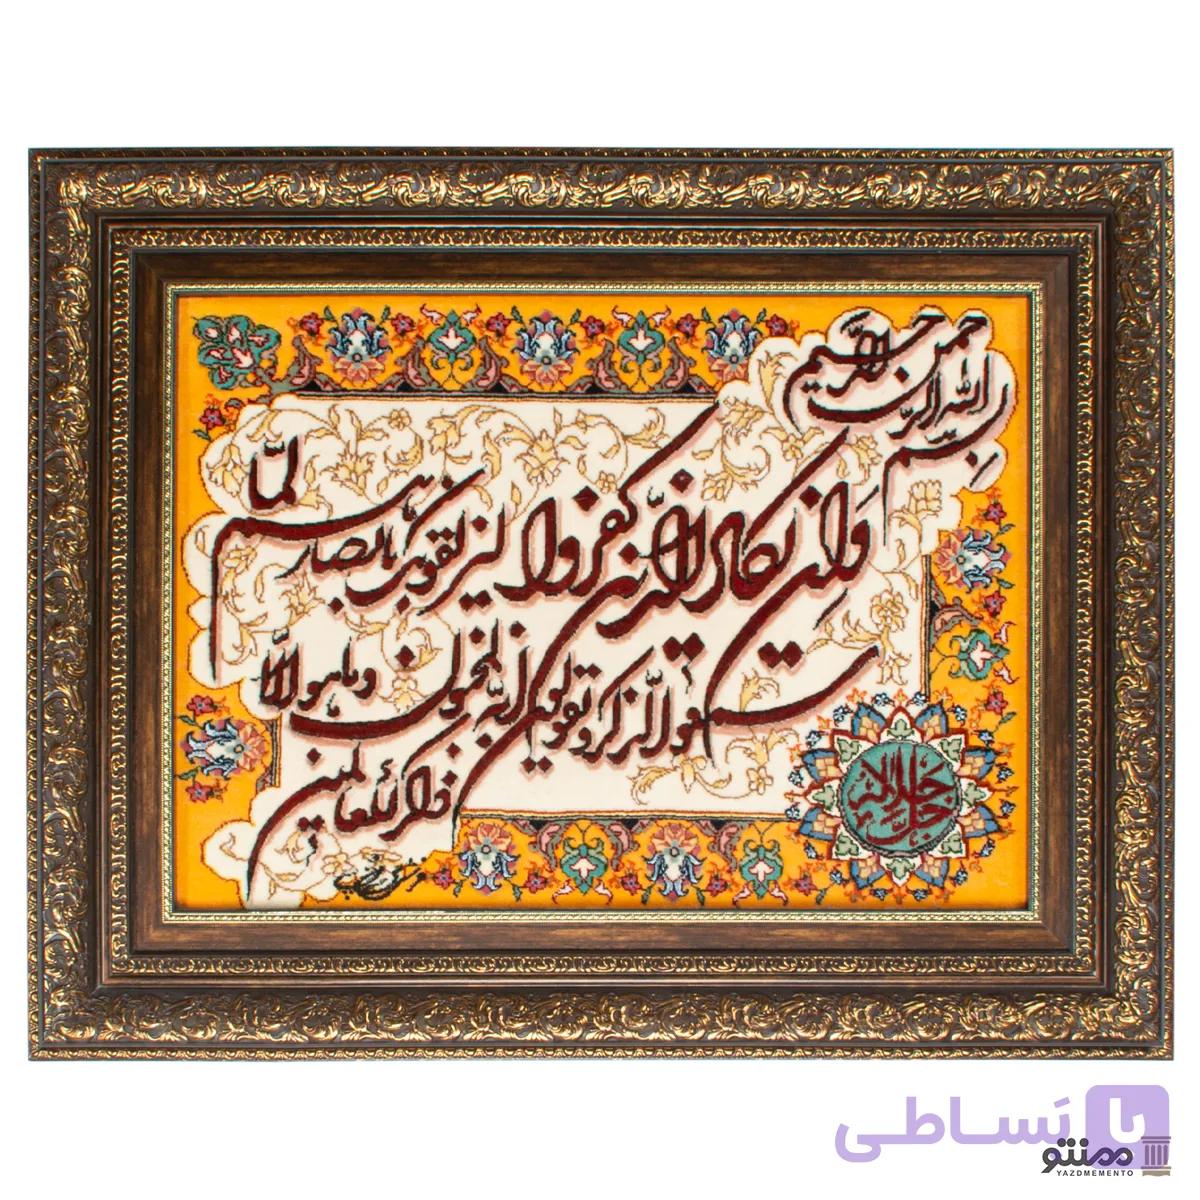 بسم الله الرحمن الرحیم
وان یکاد الذین کفروا لیزلقونک بابصارهم لما
سمعوا الذکر و یقولون انه لمجنون وما هو الا
ذکر للعالمین
جل جلاله
با بَساطی
ممنتو
YAZDMEMENTO